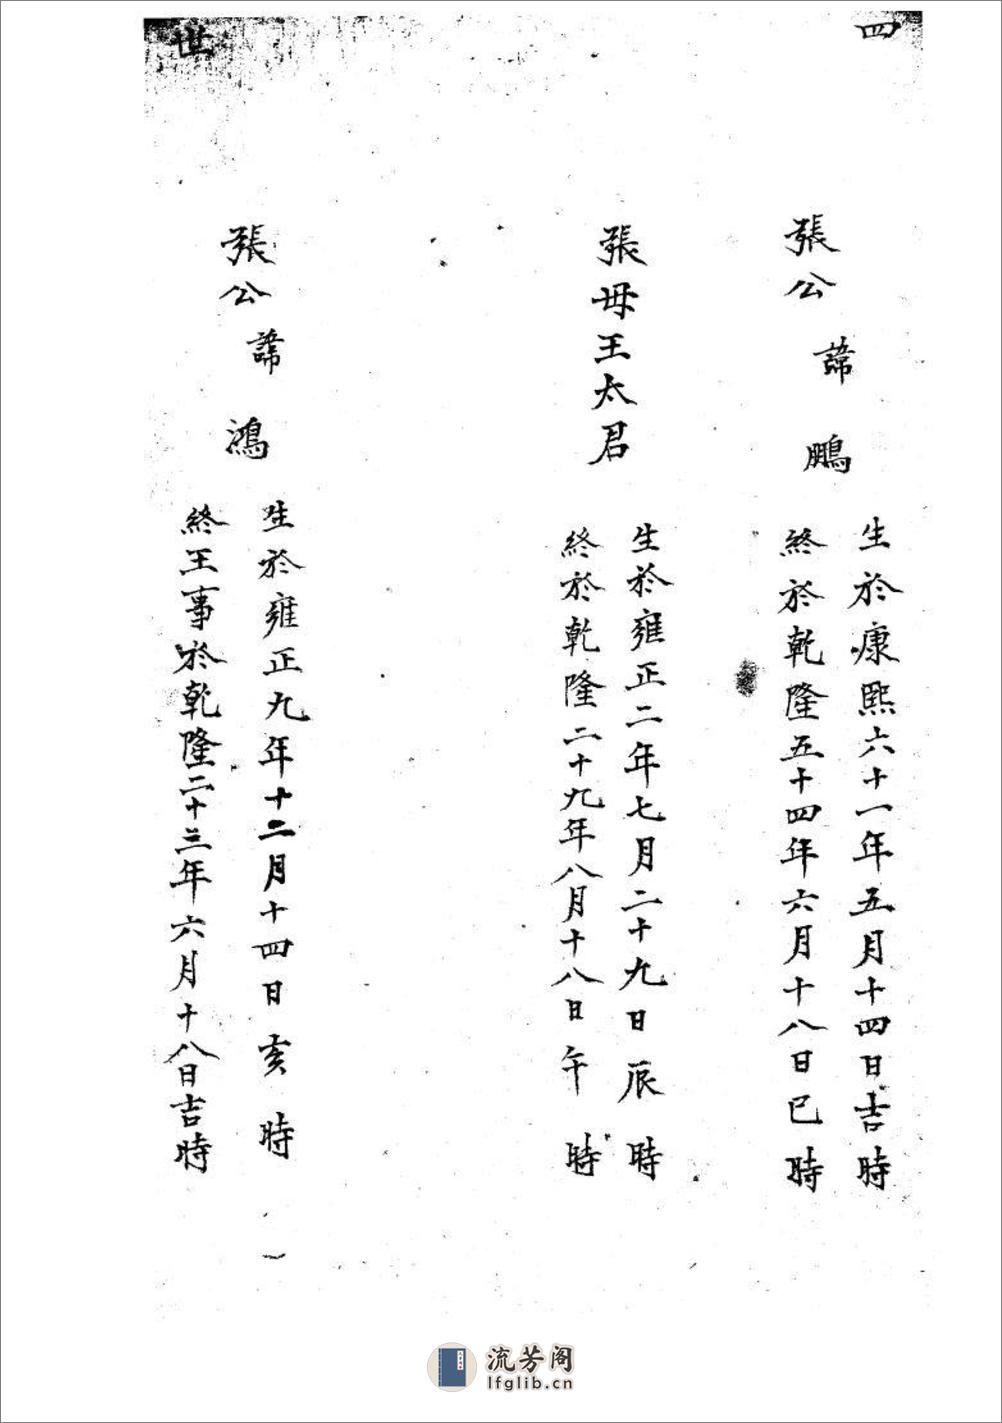 四
張公諱鵬
生於康熙六十一年五月十四日吉時
終於乾隆五十四年六月十八日巳時
張母王太君
生於雍正二年七月二十九日辰時
終於乾隆二十九年八月十八日午時
張公諱鴻
生於雍正九年十二月十四日亥時
終王事於乾隆二十三年六月十八日吉時
世
流芳阁
lfglib.cn